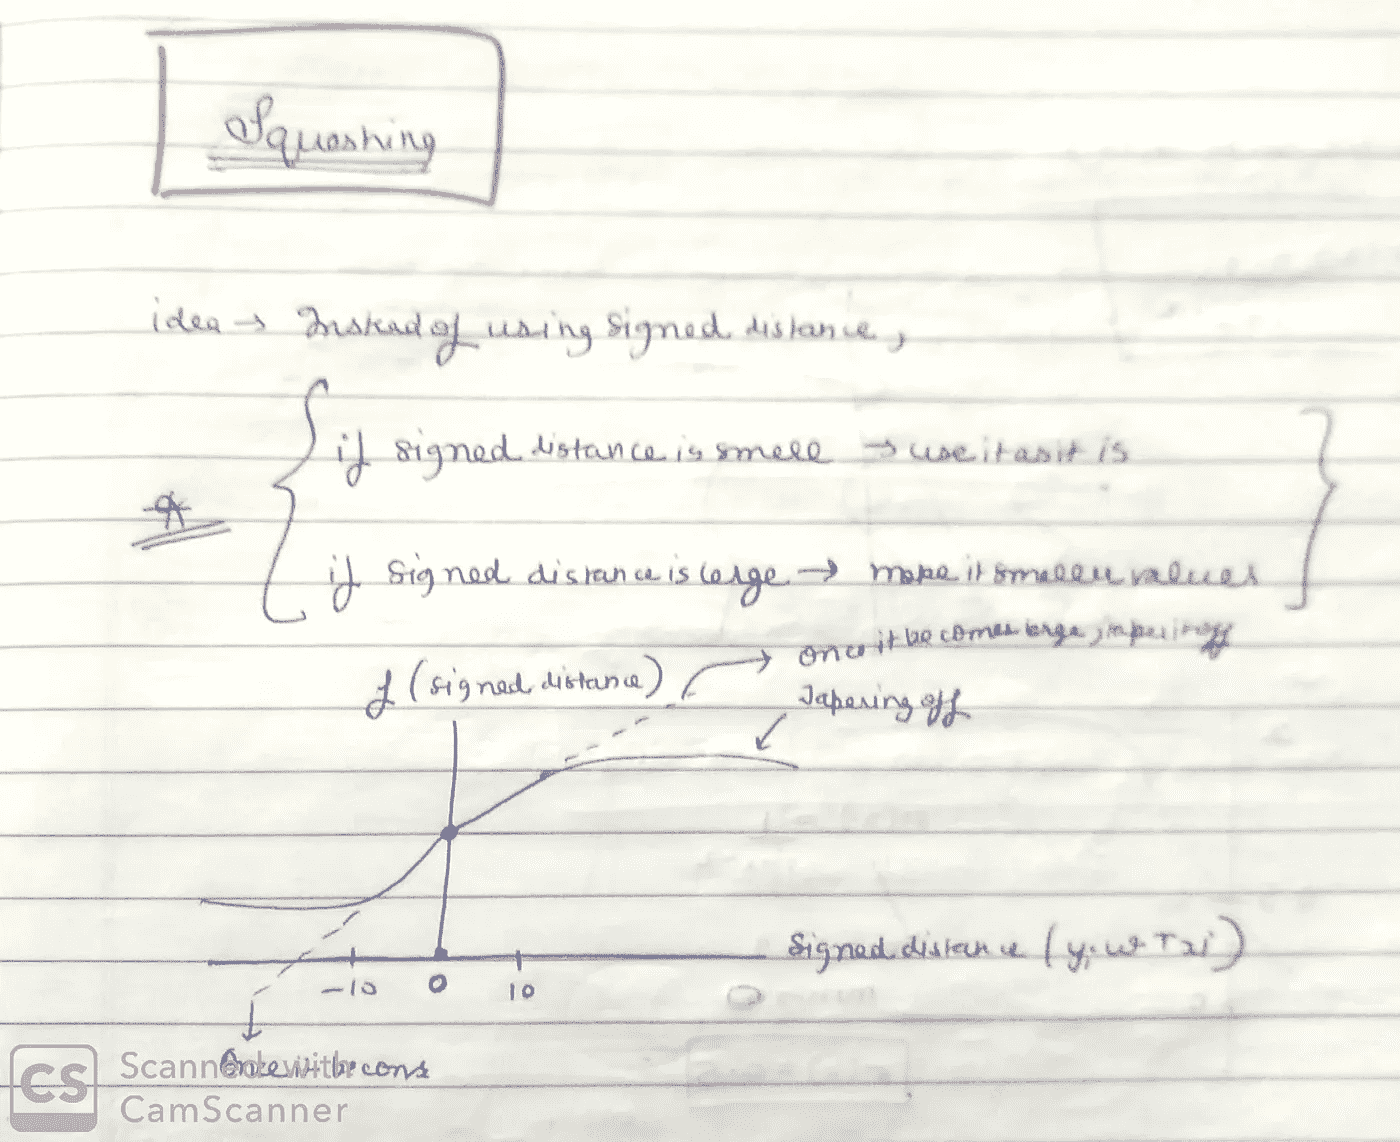 Squashing
idea → Instead of using signed distance,
if signed distance is small → use it as it is
if signed distance is large → make it smaller values
once it becomes large, tapering off
f (signed distance)
Tapering off
Signed distance (yi wTxi)
-10 0 10
Once it becoms
CS Scanned with
CamScanner